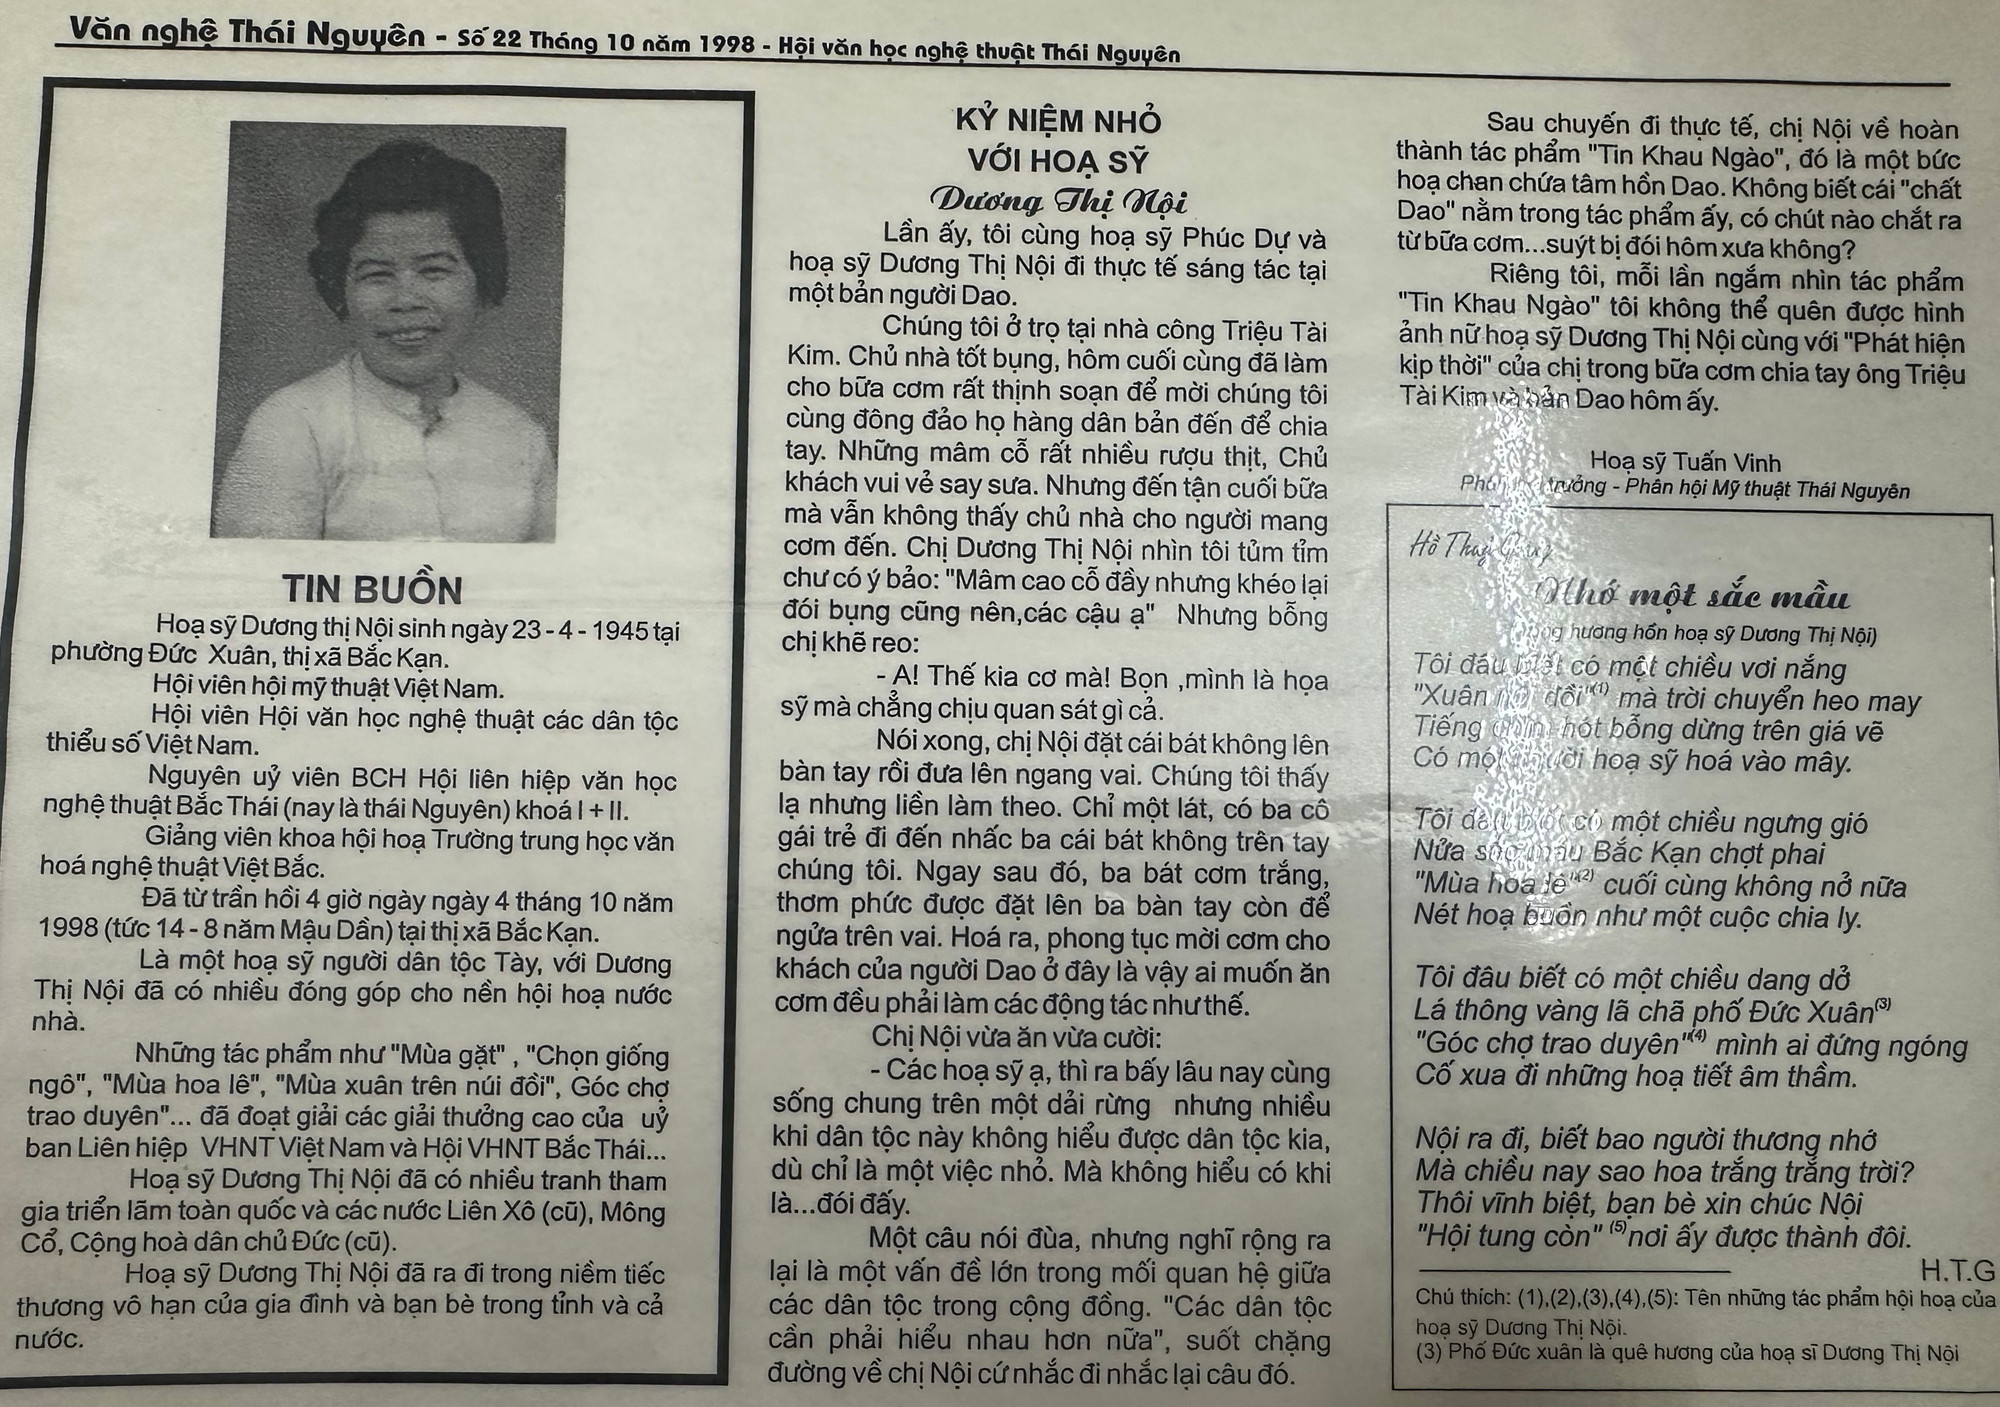 Văn nghệ Thái Nguyên - Số 22 Tháng 10 năm 1998 - Hội văn học nghệ thuật Thái Nguyên
TIN BUỒN
Hoạ sỹ Dương thị Nội sinh ngày 23 - 4 - 1945 tại
phường Đức Xuân, thị xã Bắc Kạn.
Hội viên hội mỹ thuật Việt Nam.
Hội viên Hội văn học nghệ thuật các dân tộc
thiểu số Việt Nam.
Nguyên uỷ viên BCH Hội liên hiệp văn học
nghệ thuật Bắc Thái (nay là thái Nguyên) khoá I + II.
Giảng viên khoa hội hoạ Trường trung học văn
hoá nghệ thuật Việt Bắc.
Đã từ trần hồi 4 giờ ngày ngày 4 tháng 10 năm
1998 (tức 14 - 8 năm Mậu Dần) tại thị xã Bắc Kạn.
Là một hoạ sỹ người dân tộc Tày, với Dương
Thị Nội đã có nhiều đóng góp cho nền hội hoạ nước
nhà.
Những tác phẩm như "Mùa gặt" , "Chọn giống
ngô", "Mùa hoa lê", "Mùa xuân trên núi đồi", Góc chợ
trao duyên"... đã đoạt giải các giải thưởng cao của uỷ
ban Liên hiệp VHNT Việt Nam và Hội VHNT Bắc Thái...
Hoạ sỹ Dương Thị Nội đã có nhiều tranh tham
gia triển lãm toàn quốc và các nước Liên Xô (cũ), Mông
Cổ, Cộng hoà dân chủ Đức (cũ).
Hoạ sỹ Dương Thị Nội đã ra đi trong niềm tiếc
thương vô hạn của gia đình và bạn bè trong tỉnh và cả
nước.
KỶ NIỆM NHỎ
VỚI HOẠ SỸ
Dương Thị Nội
Lần ấy, tôi cùng hoạ sỹ Phúc Dự và
hoạ sỹ Dương Thị Nội đi thực tế sáng tác tại
một bản người Dao.
Chúng tôi ở trọ tại nhà công Triệu Tài
Kim. Chủ nhà tốt bụng, hôm cuối cùng đã làm
cho bữa cơm rất thịnh soạn để mời chúng tôi
cùng đông đảo họ hàng dân bản đến để chia
tay. Những mâm cỗ rất nhiều rượu thịt, Chủ
khách vui vẻ say sưa. Nhưng đến tận cuối bữa
mà vẫn không thấy chủ nhà cho người mang
cơm đến. Chị Dương Thị Nội nhìn tôi tủm tỉm
chư có ý bảo: "Mâm cao cỗ đầy nhưng khéo lại
đói bụng cũng nên,các cậu ạ" Nhưng bỗng
chị khẽ reo:
- A! Thế kia cơ mà! Bọn ,mình là họa
sỹ mà chẳng chịu quan sát gì cả.
Nói xong, chị Nội đặt cái bát không lên
bàn tay rồi đưa lên ngang vai. Chúng tôi thấy
lạ nhưng liền làm theo. Chỉ một lát, có ba cô
gái trẻ đi đến nhấc ba cái bát không trên tay
chúng tôi. Ngay sau đó, ba bát cơm trắng,
thơm phức được đặt lên ba bàn tay còn để
ngửa trên vai. Hoá ra, phong tục mời cơm cho
khách của người Dao ở đây là vậy ai muốn ăn
cơm đều phải làm các động tác như thế.
Chị Nội vừa ăn vừa cười:
- Các hoạ sỹ ạ, thì ra bấy lâu nay cùng
sống chung trên một dải rừng nhưng nhiều
khi dân tộc này không hiểu được dân tộc kia,
dù chỉ là một việc nhỏ. Mà không hiểu có khi
là...đói đấy.
Một câu nói đùa, nhưng nghĩ rộng ra
lại là một vấn đề lớn trong mối quan hệ giữa
các dân tộc trong cộng đồng. "Các dân tộc
cần phải hiểu nhau hơn nữa", suốt chặng
đường về chị Nội cứ nhắc đi nhắc lại câu đó.
Sau chuyến đi thực tế, chị Nội về hoàn
thành tác phẩm "Tin Khau Ngào", đó là một bức
hoạ chan chứa tâm hồn Dao. Không biết cái "chất
Dao" nằm trong tác phẩm ấy, có chút nào chắt ra
từ bữa cơm...suýt bị đói hôm xưa không?
Riêng tôi, mỗi lần ngắm nhìn tác phẩm
"Tin Khau Ngào" tôi không thể quên được hình
ảnh nữ hoạ sỹ Dương Thị Nội cùng với "Phát hiện
kịp thời" của chị trong bữa cơm chia tay ông Triệu
Tài Kim và bản Dao hôm ấy.
Hoạ sỹ Tuấn Vinh
trưởng - Phân hội Mỹ thuật Thái Nguyên
Hồ Thuỷ Giang
Nhớ một sắc mầu
hương hồn hoạ sỹ Dương Thị Nội)
Tôi đâu biết có một chiều vơi nắng
"Xuân núi đồi"(1) mà trời chuyển heo may
Tiếng chim hót bỗng dừng trên giá vẽ
Có một người hoạ sỹ hoá vào mây.
Tôi đâu biết có một chiều ngưng gió
Nửa sắc màu Bắc Kạn chợt phai
"Mùa hoa lê"(2) cuối cùng không nở nữa
Nét hoạ buồn như một cuộc chia ly.
Tôi đâu biết có một chiều dang dở
Lá thông vàng lã chã phố Đức Xuân(3)
"Góc chợ trao duyên"(4) mình ai đứng ngóng
Cố xua đi những hoạ tiết âm thầm.
Nội ra đi, biết bao người thương nhớ
Mà chiều nay sao hoa trắng trắng trời?
Thôi vĩnh biệt, bạn bè xin chúc Nội
"Hội tung còn" (5)nơi ấy được thành đôi.
H.T.G
Chú thích: (1),(2),(3),(4),(5): Tên những tác phẩm hội hoạ của
hoạ sỹ Dương Thị Nội.
(3) Phố Đức xuân là quê hương của hoạ sĩ Dương Thị Nội